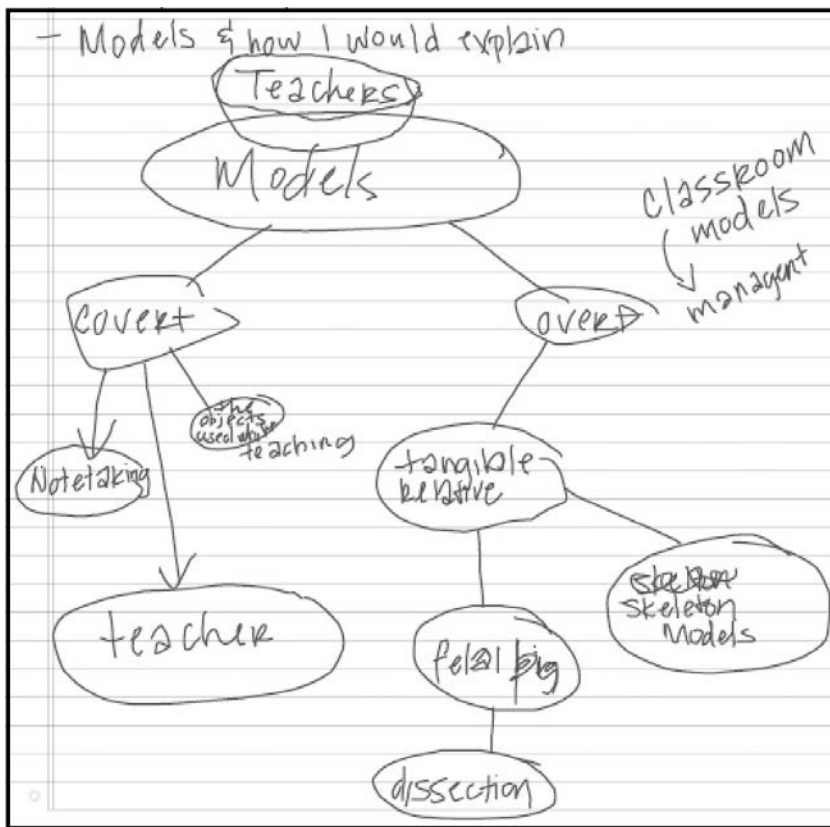 - Models & how I would explain
Teachers
Models
Classroom
models
managent
covert
overt
the
objects
used while
teaching
Notetaking
tangible
relative
skeleton
skeleton
Models
teacher
fetal pig
dissection